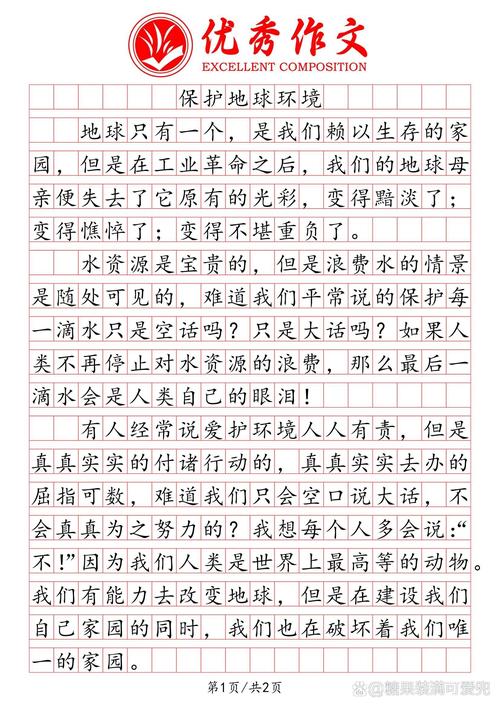 优秀作文
EXCELLENT COMPOSITION
保护地球环境
地球只有一个，是我们赖以生存的家
园，但是在工业革命之后，我们的地球母
亲便失去了它原有的光彩，变得黯淡了；
变得憔悴了；变得不堪重负了。
水资源是宝贵的，但是浪费水的情景
是随处可见的，难道我们平常说的保护每
一滴水只是空话吗？只是大话吗？如果人
类不再停止对水资源的浪费，那么最后一
滴水会是人类自己的眼泪！
有人经常说爱护环境人人有责，但是
真真实实的付诸行动的，真真实实去办的
屈指可数，难道我们只会空口说大话，不
会真真为之努力的？我想每个人多会说：“
不！”因为我们人类是世界上最高等的动物。
我们有能力去改变地球，但是在建设我们
自己家园的同时，我们也在破坏着我们唯
一的家园。
第1页/共2页
@糖果装满可爱兜